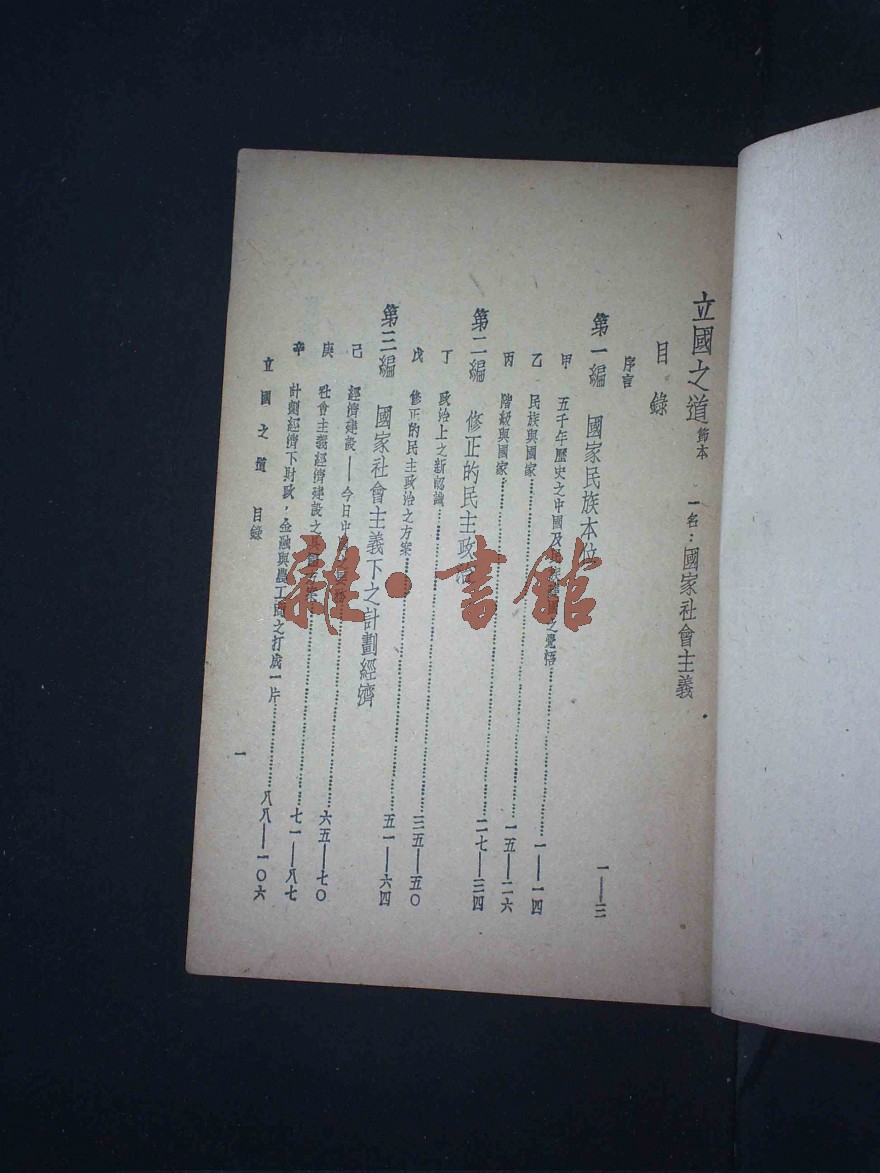 立國之道 節本 一名：國家社會主義
目錄
序言 一——三
第一編 國家民族本位
甲 五千年歷史之中國及之覺悟 一——一四
乙 民族與國家 一五——二六
丙 階級與國家 二七——三四
第二編 修正的民主政治
丁 政治上之新認識 三五——五〇
戊 修正的民主政治之方案 五一——六四
第三編 國家社會主義下之計劃經濟
己 經濟建設——今日中 六五——七〇
庚 社會主義經濟建設之 七一——八七
辛 計劃經濟下財政，金融與農工商之打成一片 八八——一〇六
立國之道 目錄 一
雜·書館